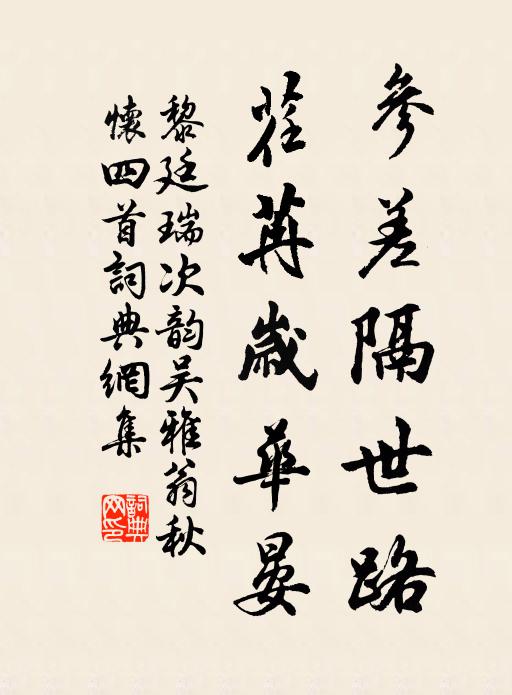 參差隔世路
荏苒歲華晏
黎廷瑞次韵吴雅翁秋
懷四首詞典網集
詞典
网印